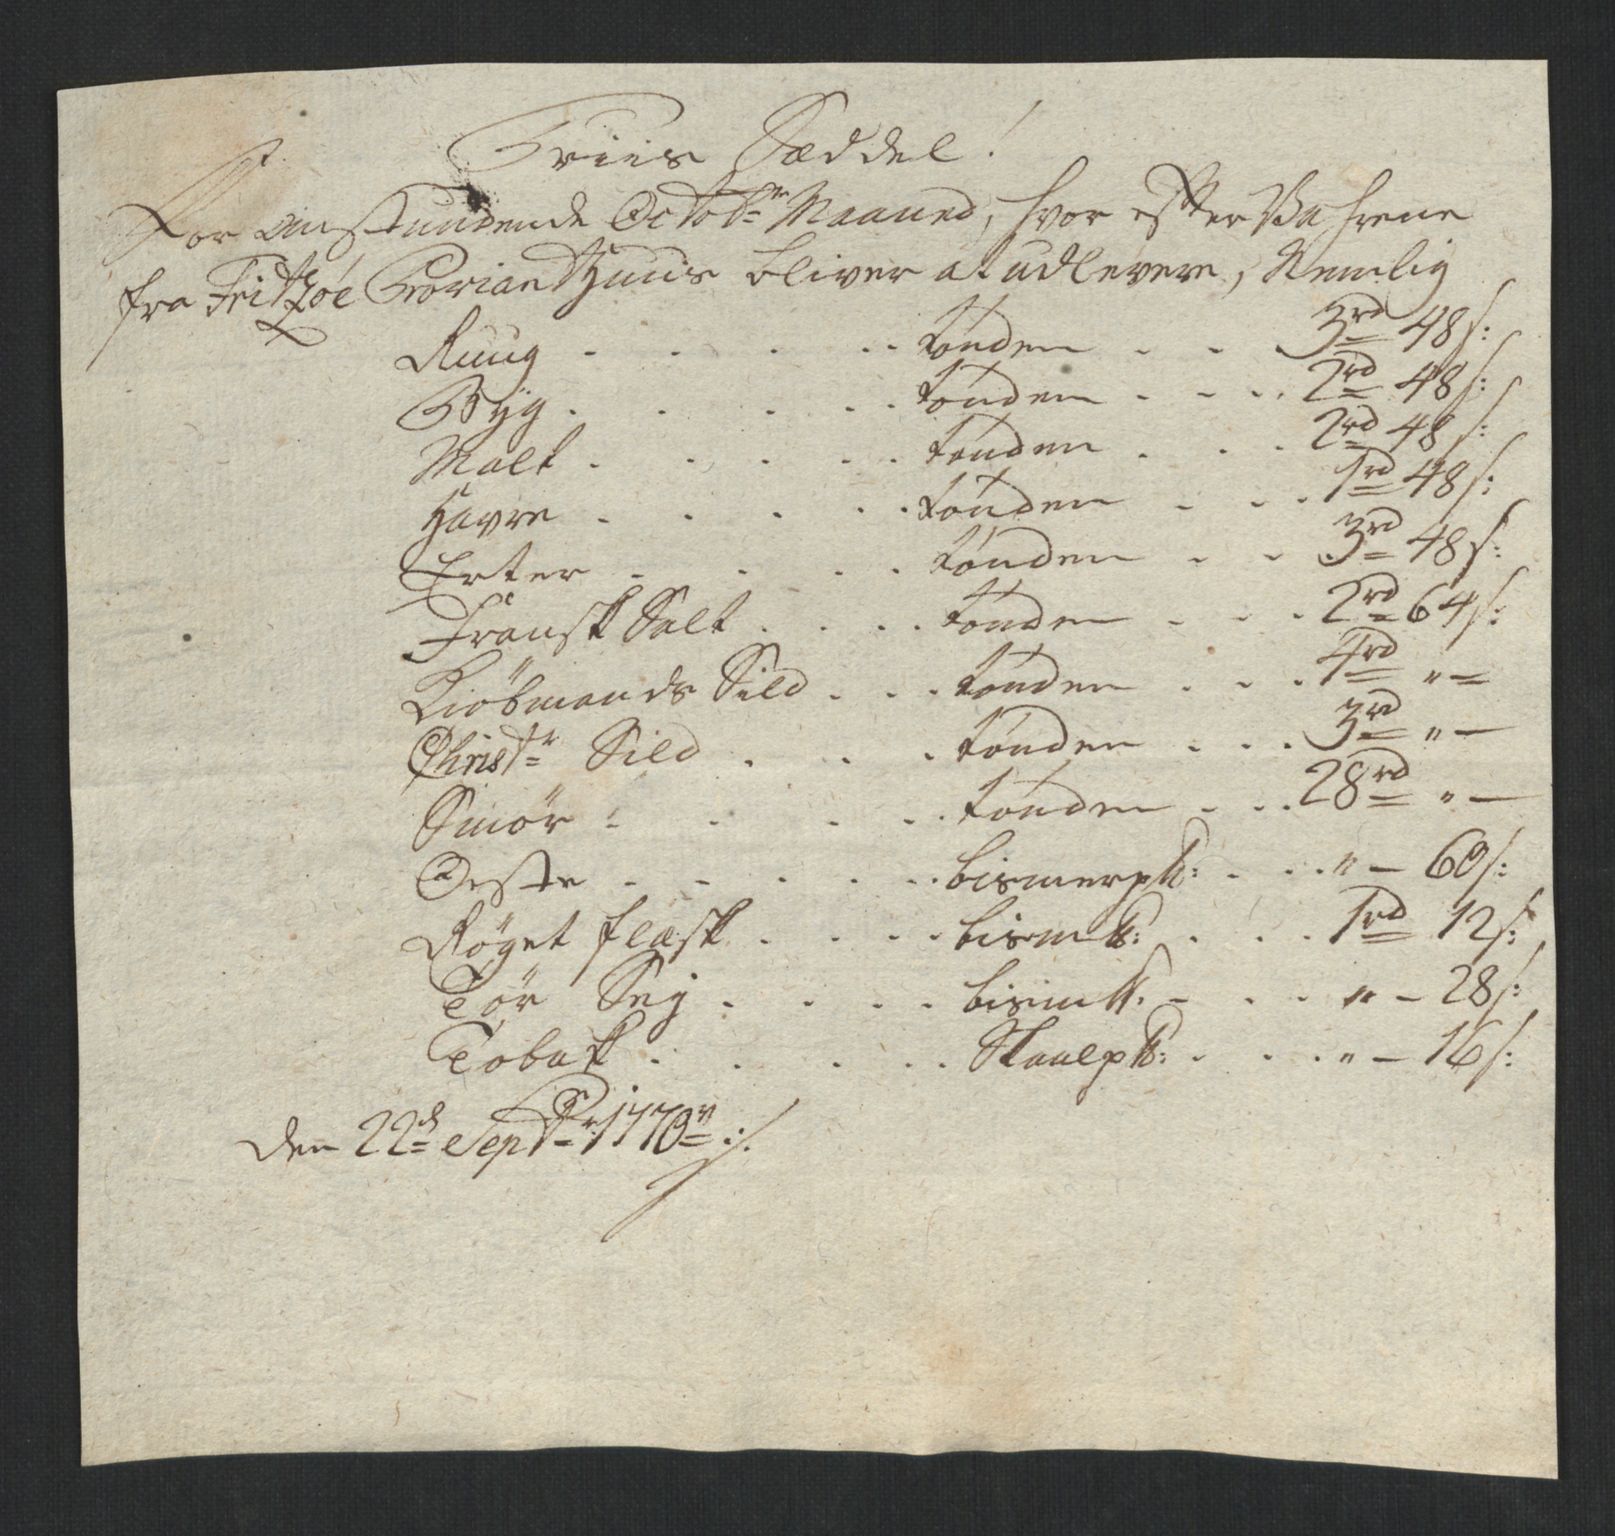 Priis Sæddel!
For anstundende Octobr Maaned, hvor efter Vahrene
fra Fritzøe Proviant Huus bliver at udlevere, Nemlig
Ruug . . . . . tønden . . . 3rd 48 s:
Byg . . . . . tønden . . . 2rd 48 s:
Malt . . . . . tønden . . . 2rd 48 s:
Havre . . . . . tønden . . . 1rd 48 s:
Erter . . . . tønden . . 3rd 48 s:
Fransk Salt . . . . tønden . . . 2rd 64 s:
Kiøbmands Sild . . . tønden . . . 4rd " —
Christr Sild . . . tønden . . . 3rd " —
Smør . . . . . tønden . . . 28rd " —
Oste . . . . . bismerp℔: . . . " — 60 s:
Røget flæsk . . . . bism℔: . . . 1rd 12 s:
Tør Sej . . . . bism℔: . . . " — 28 s:
Tobak . . . . . Skaalp℔: . . . " — 16 s:
Den 22de Septr 1770